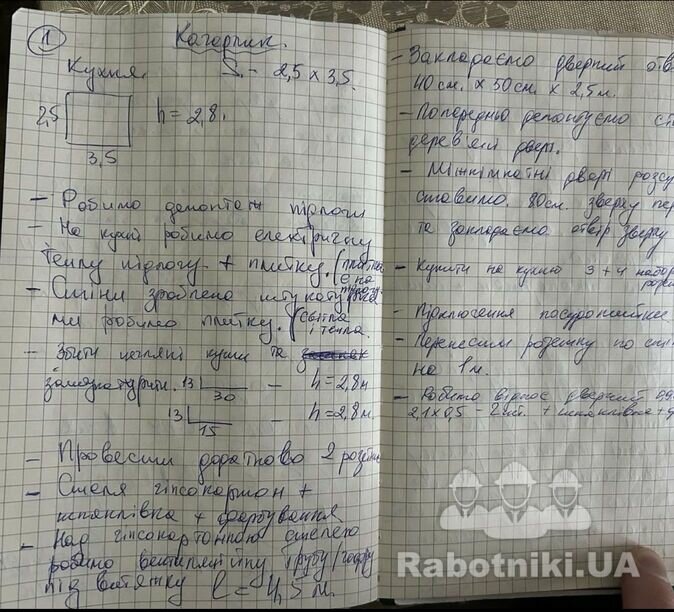 1
Кагарлик.
Кухня. S. - 2,5 х 3,5.
2,5
h = 2,8.
3,5
- Робимо демонтаж підлоги
- На кухні робимо електричну
теплу підлогу + плитку. (плитка
є на
підлогу
- Стіни зроблено штукатурка
ми робимо плитку. (світла
і тепла.
- Збити цегляні кущи та
заштукатурити. 13 30 - h = 2,8 м
13 15 - h = 2,8 м.
- Провести додатково 2 розетки
- Стеля гіпсокартон +
шпаклівка + фарбування
- Над гіпсокартонною стелею
робимо вентиляційну трубу/гофру
під витяжку l = 4,5 м.
- Закладаємо дверний отв
40 см. х 50 см. х 2,5 м.
- Попередньо демонтуємо ст
дерев'яні двері.
- Міжкімнатні двері розсу
ставимо. 80 см. зверху пер
та закладаємо отвір зверху
- Купити на кухню 3 + 4 набор
- Підключення посудомийки
- Перенести розетку по сті
на 1 м.
- Робимо відкос дверний 0,9
2,1 х 0,5 - 2 шт. + шпаклівка +
Rabotniki.UA